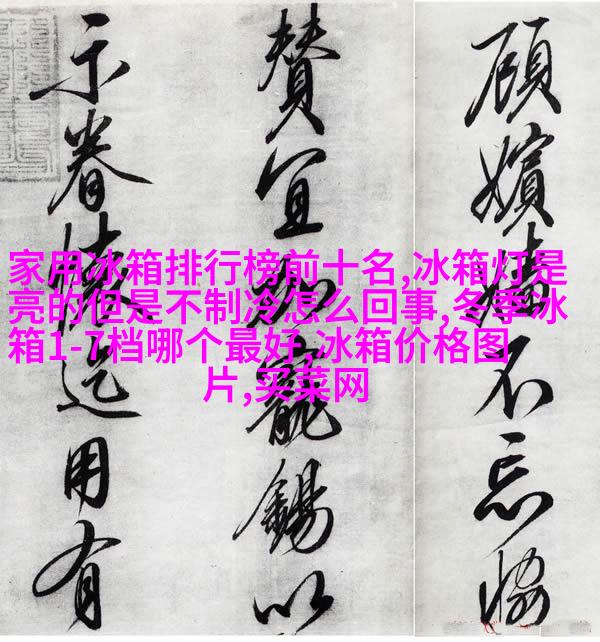 家用冰箱排行榜前十名,冰箱灯是
亮的但是不制冷怎么回事,冬季冰
箱1-7档哪个最好,冰箱价格图
片,买菜网
顾嬪嬙不忘協
賛宜加寵錫以
示眷用有